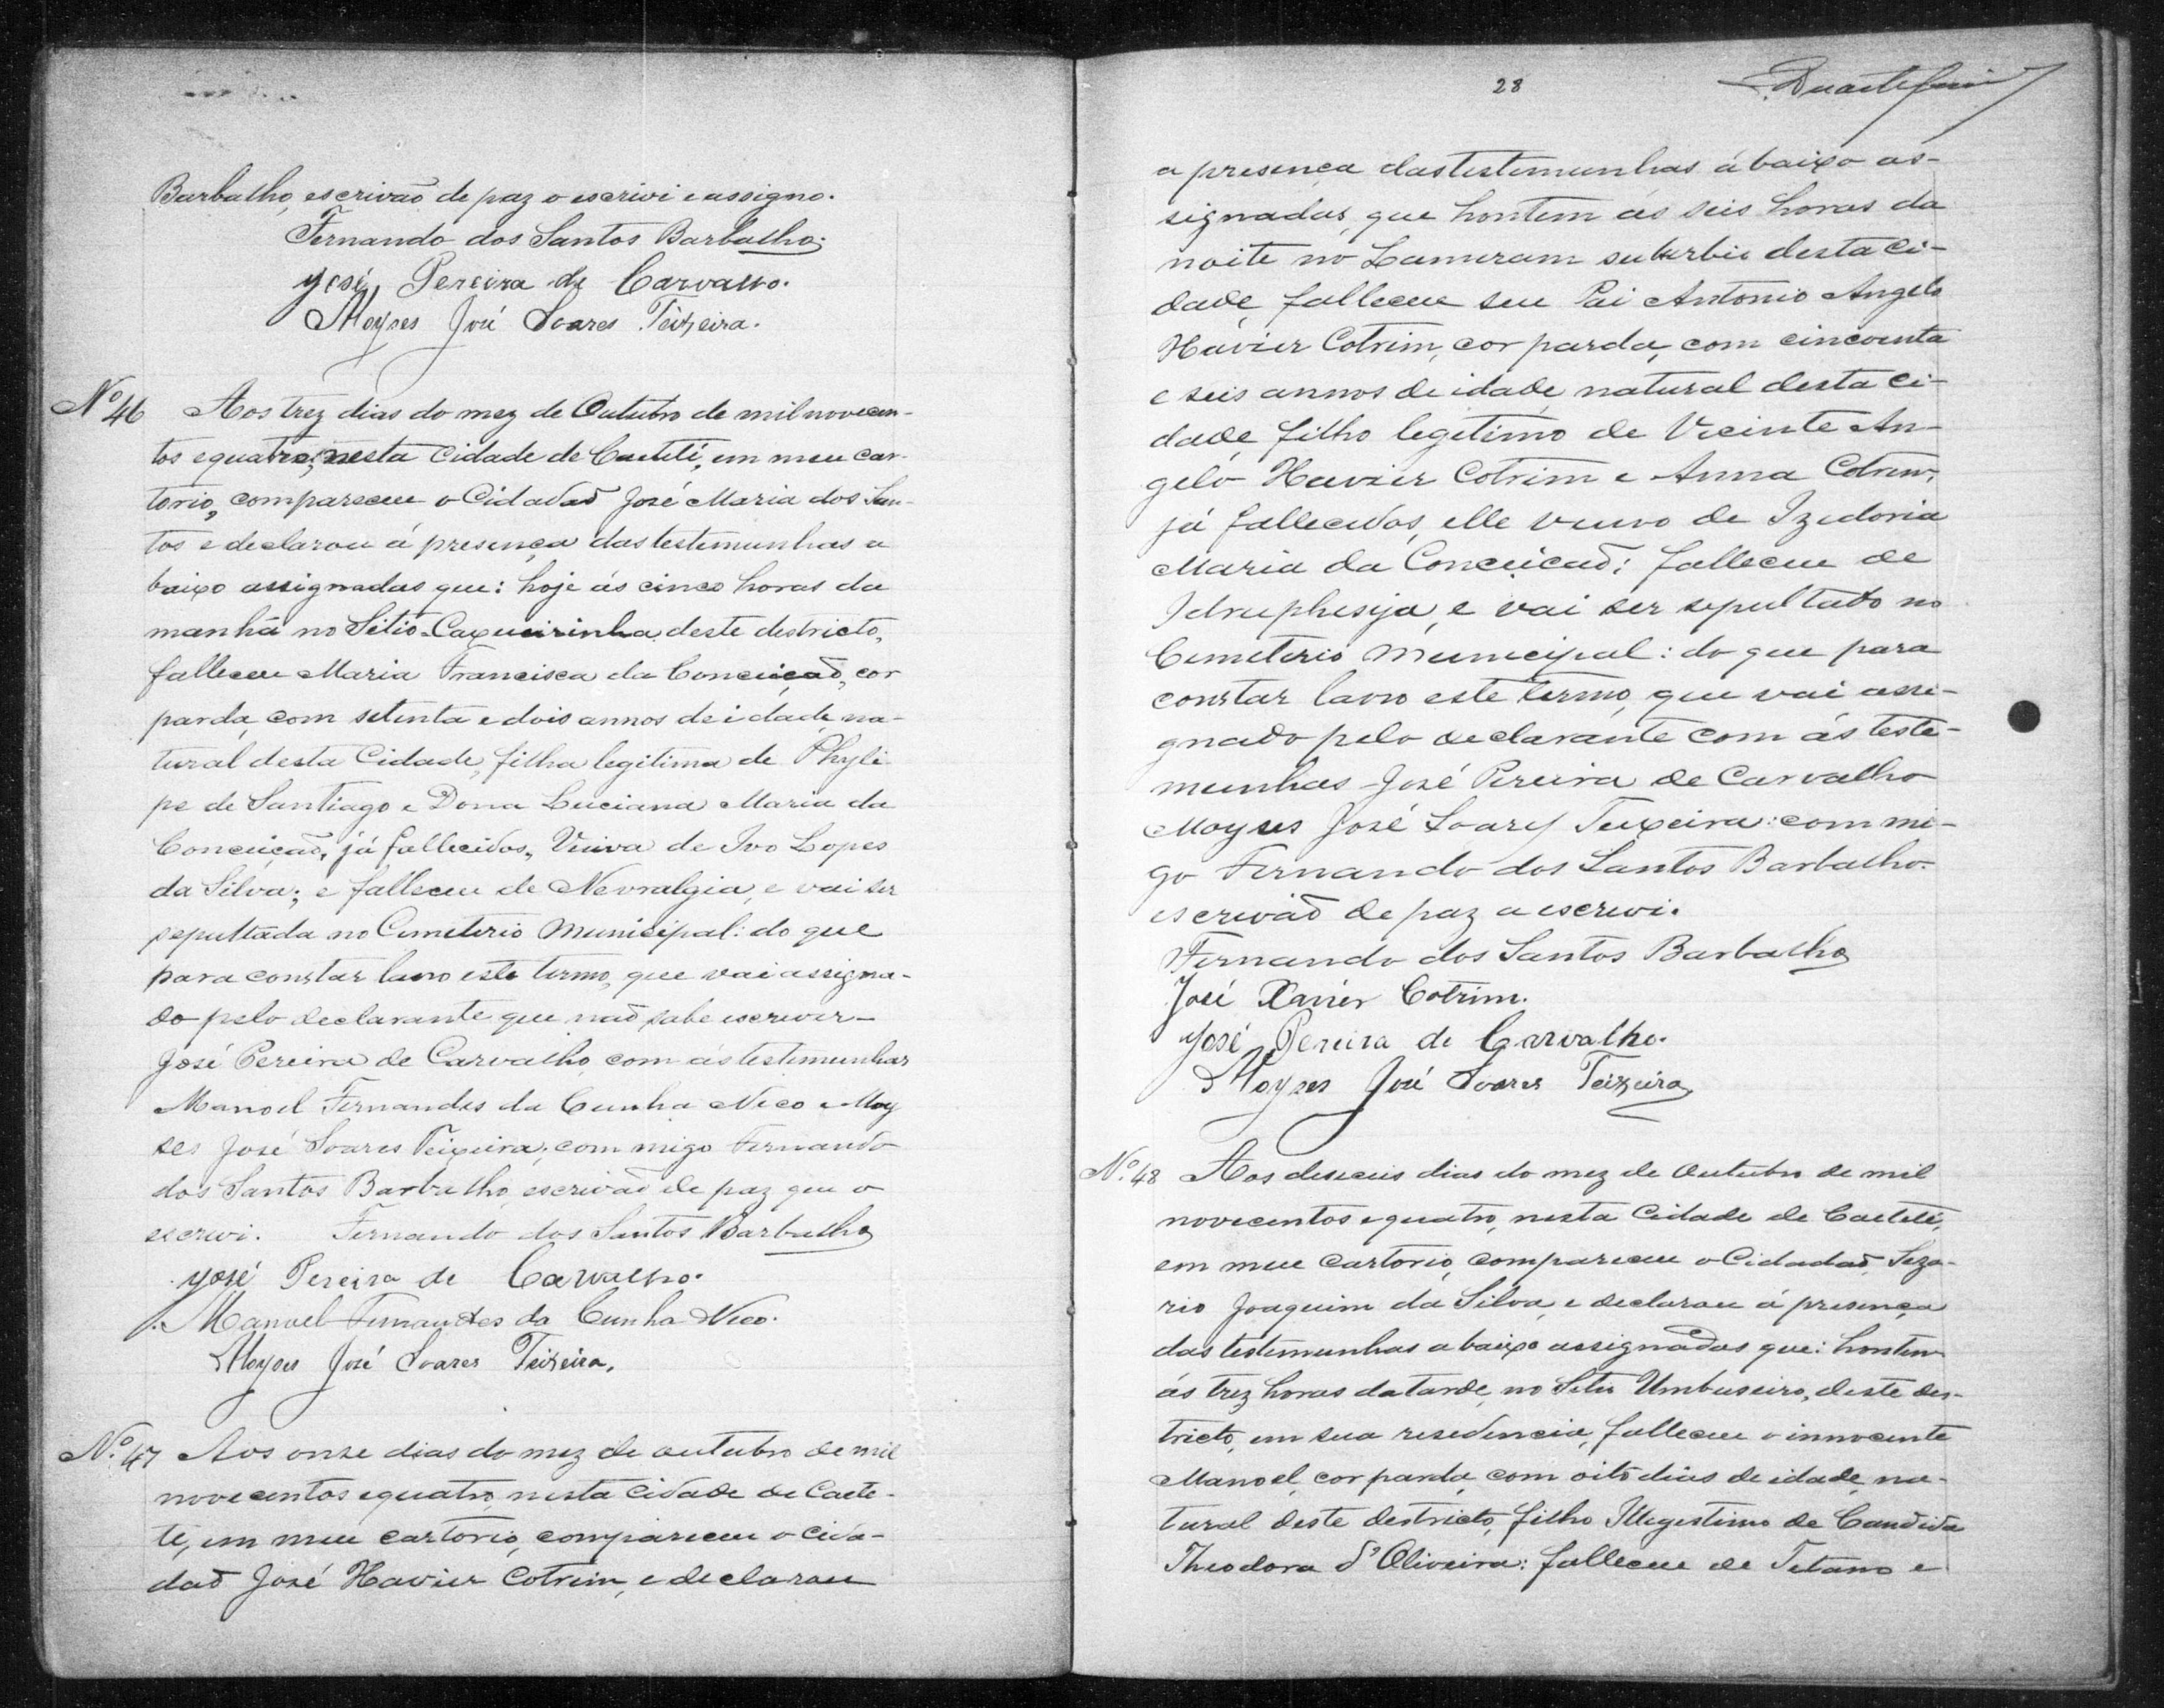 Barbalho, escrivaõ de paz o escrivi e assigno.
Fernando dos Santos Barbalho.
José Pereira de Carvalho.
Moyses José Soares Teixeira.
Nº 46 Aos trez dias do mez de Outubro de mil novecen-
tos e quatro, nesta Cidade de Caeteté, em meu car-
torio, compareceu o Cidadaõ José Maria dos San-
tos e declarou á presença das testemunhas a
baixo assignadas que: hoje ás cinco horas da
manhã no Sitio Caxueirinha deste destricto,
falleceu Maria Francisca da Conceiçaõ, cor
parda, com setenta e dois annos de idade, na-
tural desta Cidade, filha legitima de Phyli-
pe de Santiago e Dona Luciana Maria da
Conceiçaõ, já fallecidos, Viuva de Ivo Lopes
da Silva; e falleceu de Nevralgia, e vai ser
sepultada no Cemeterio Municipal: do que
para constar lavro este termo, que vai assigna-
do pelo declarante que naõ sabe escrever-
José Pereira de Carvalho, com ás testemunhas
Manoel Fernandes da Cunha Neco e Moy
ses José Soares Teixeira; com migo Fernando
dos Santos Barbalho, escrivaõ de paz que o
screvi. Fernando dos Santos Barbalho
José Pereira de Carvalho.
Manoel Fernandes da Cunha Neco.
Moyses José Soares Teixeira.
Nº 47 Aos onse dias do mez de outubro de mil
novecentos e quatro, nesta Cidade de Caete-
té, em meu cartorio, compareceu o Cida-
daõ José Havier Cotrim, e declarou
28
a presença das testemunhas ábaixo as-
signadas, que hontem ás seis horas da
noite no Lameram suburbio desta Ci-
dade, falleceu seu Pai Antonio Angelo
Havier Cotrim, cor parda, com cincoenta
e seis annos de idade, natural desta Ci-
dade, filho legetimo de Vicente An-
gelo Havier Cotrim e Anna Cotrim,
já fallecidos, elle viuvo de Izedoria
Maria da Conceicaõ; falleceu de
Idruphesija, e vai ser sepultado no
Cemeterio Municipal: do que para
constar lavro este termo, que vai assi-
gnado pelo declarante com ás teste-
munhas José Pereira de Carvalho
Moyses José Soares Teixeira: com mi-
go Fernando dos Santos Barbalho.
escrivaõ de paz a escrevi.
Fernando dos Santos Barbalho
José Xavier Cotrim.
José Pereira de Carvalho.
Moyses José Soares Teixeira
Nº. 48 Aos deseceis dias do mez de Outubro de mil
novecentos e quatro, nesta Cidade de Caeteté,
em meu cartorio, compareceu o Cidadaõ Seza-
rio Joaquim da Silva, e declarou á presença
das testemunhas abaixo assignadas que: hontem
ás trez horas da tarde, no Sitio Umbuseiro, deste des-
tricto, em sua resedencia, falleceu o innocente
Manoel, cor parda, com oito dias de idade, na-
tural deste destricto, filho Illegestimo de Candida
Theodora d'Oliveira: falleceu de Tetano e